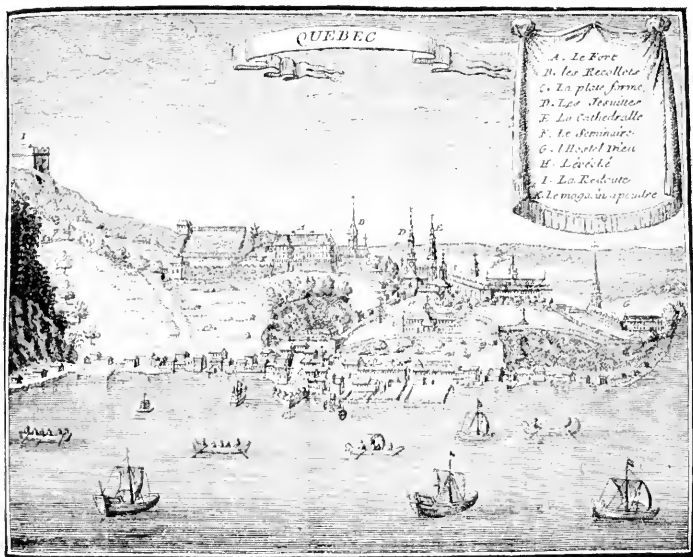 QUEBEC
A. Le Fort
B. les Recollets
C. La plate forme
D. Les Jesuittes
E. La Cathedralle
F. Le Seminaire
G. l'Hostel Dieu
H. Lévéché
I. La Redoute
K. Le magazin a poudre
I
A
B
D
E
G